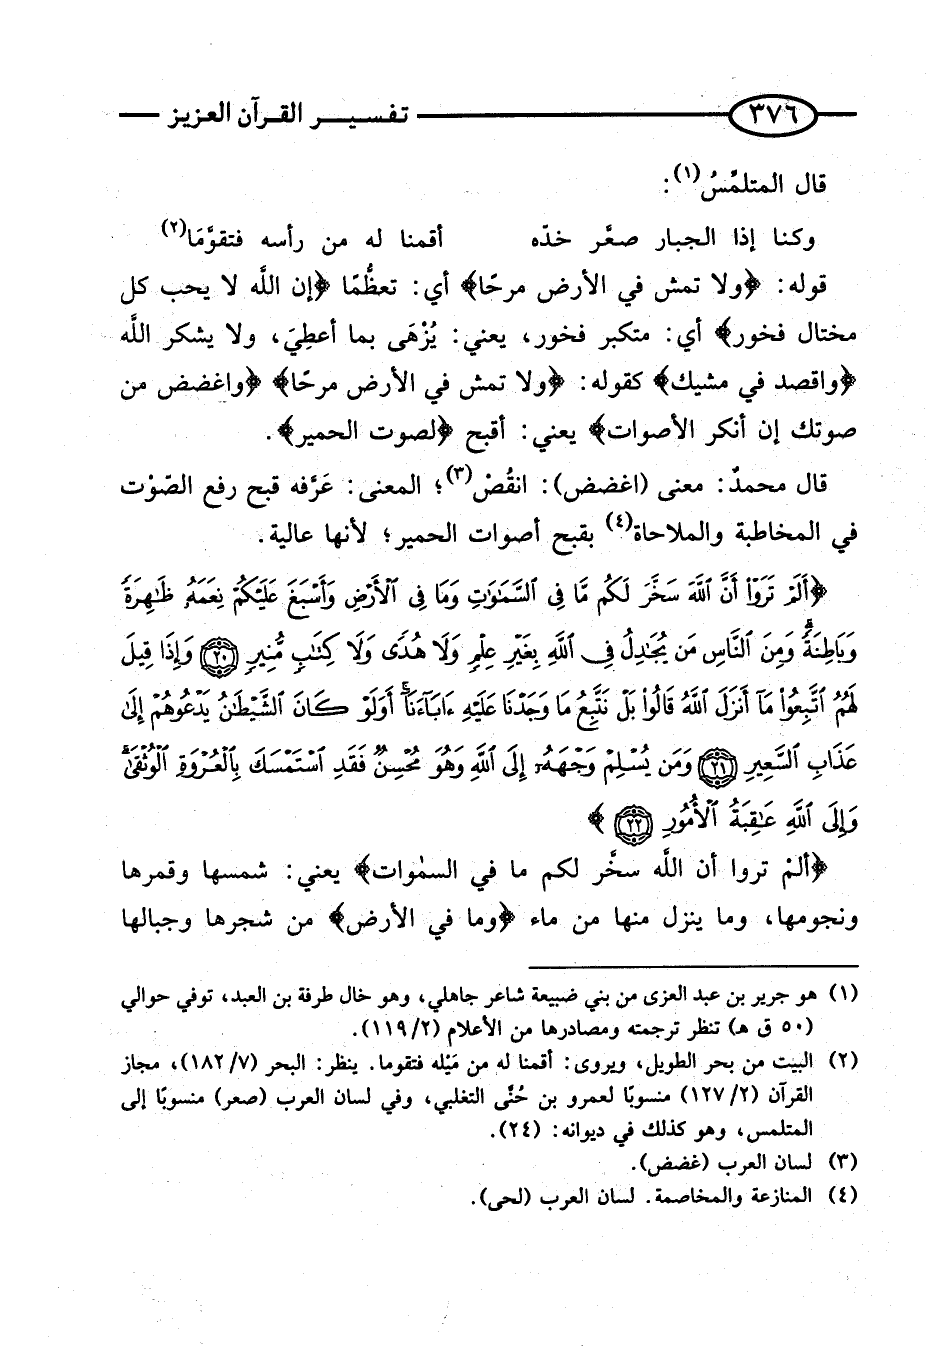 ٣٧٦ تفسير القرآن العزيز
قال المتلمِّسُ(١):
وكنا إذا الجبار صعَّر خدّه أقمنا له من رأسه فتقوَّمَا(٢)
قوله: ﴿ولا تمش في الأرض مرحًا﴾ أي: تعظُّمًا ﴿إن الله لا يحب كل
مختال فخور﴾ أي: متكبر فخور، يعني: يُزْهَى بما أعطِيَ، ولا يشكر اللَّه
﴿واقصد في مشيك﴾ كقوله: ﴿ولا تمش في الأرض مرحًا﴾ ﴿واغضض من
صوتك إن أنكر الأصوات﴾ يعني: أقبح ﴿لصوت الحمير﴾.
قال محمدٌ: معنى (اغضض): انقُصْ(٣)؛ المعنى: عَرَّفه قبح رفع الصّوْت
في المخاطبة والملاحاة(٤) بقبح أصوات الحمير؛ لأنها عالية.
﴿أَلَمْ تَرَوْا۟ أَنَّ ٱللَّهَ سَخَّرَ لَكُم مَّا فِى ٱلسَّمَٰوَٰتِ وَمَا فِى ٱلْأَرْضِ وَأَسْبَغَ عَلَيْكُمْ نِعَمَهُۥ ظَٰهِرَةً
وَبَاطِنَةً ۗ وَمِنَ ٱلنَّاسِ مَن يُجَٰدِلُ فِى ٱللَّهِ بِغَيْرِ عِلْمٍ وَلَا هُدًى وَلَا كِتَٰبٍ مُّنِيرٍ ٢٠ وَإِذَا قِيلَ
لَهُمُ ٱتَّبِعُوا۟ مَآ أَنزَلَ ٱللَّهُ قَالُوا۟ بَلْ نَتَّبِعُ مَا وَجَدْنَا عَلَيْهِ ءَابَآءَنَآ ۚ أَوَلَوْ كَانَ ٱلشَّيْطَٰنُ يَدْعُوهُمْ إِلَىٰ
عَذَابِ ٱلسَّعِيرِ ٢١ وَمَن يُسْلِمْ وَجْهَهُۥٓ إِلَى ٱللَّهِ وَهُوَ مُحْسِنٌ فَقَدِ ٱسْتَمْسَكَ بِٱلْعُرْوَةِ ٱلْوُثْقَىٰ ۗ
وَإِلَى ٱللَّهِ عَٰقِبَةُ ٱلْأُمُورِ ٢٢ ﴾
﴿ألمْ تروا أن اللَّه سخَّر لكم ما في السمٰوات﴾ يعني: شمسها وقمرها
ونجومها، وما ينزل منها من ماء ﴿وما في الأرض﴾ من شجرها وجبالها
(١) هو جرير بن عبد العزى من بني ضبيعة شاعر جاهلي، وهو خال طرفة بن العبد، توفي حوالي
(٥٠ ق هـ) تنظر ترجمته ومصادرها من الأعلام (١١٩/٢).
(٢) البيت من بحر الطويل، ويروى: أقمنا له من مَيْله فتقوما. ينظر: البحر (١٨٢/٧)، مجاز
القرآن (١٢٧/٢) منسوبًا لعمرو بن حُنَّى التغلبي، وفي لسان العرب (صعر) منسوبًا إلى
المتلمس، وهو كذلك في ديوانه: (٢٤).
(٣) لسان العرب (غضض).
(٤) المنازعة والمخاصمة. لسان العرب (لحى).